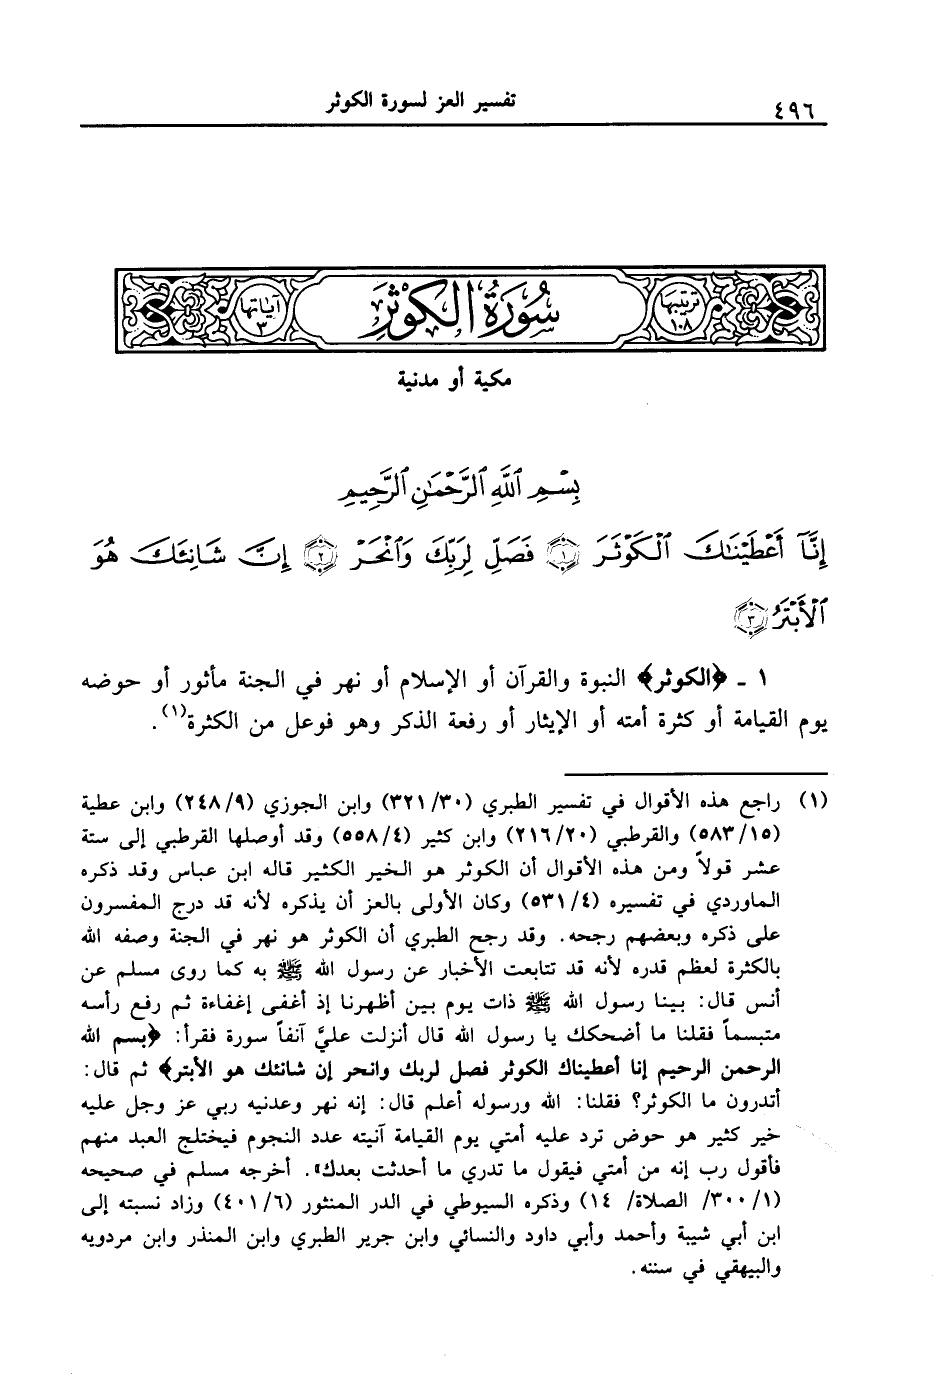 ٤٩٦
تفسير العز لسورة الكوثر
ترتيبها ١٠٨
سُورَةُ الكَوْثَرِ
آياتها ٣
مكية أو مدنية
بِسْمِ ٱللَّهِ ٱلرَّحْمَٰنِ ٱلرَّحِيمِ
إِنَّآ أَعْطَيْنَٰكَ ٱلْكَوْثَرَ ١ فَصَلِّ لِرَبِّكَ وَٱنْحَرْ ٢ إِنَّ شَانِئَكَ هُوَ
ٱلْأَبْتَرُ ٣
١ - ﴿الكوثر﴾ النبوة والقرآن أو الإسلام أو نهر في الجنة مأثور أو حوضه
يوم القيامة أو كثرة أمته أو الإيثار أو رفعة الذكر وهو فوعل من الكثرة(١).
(١) راجع هذه الأقوال في تفسير الطبري (٣٢١/٣٠) وابن الجوزي (٢٤٨/٩) وابن عطية
(٥٨٣/١٥) والقرطبي (٢١٦/٢٠) وابن كثير (٥٥٨/٤) وقد أوصلها القرطبي إلى ستة
عشر قولاً ومن هذه الأقوال أن الكوثر هو الخير الكثير قاله ابن عباس وقد ذكره
الماوردي في تفسيره (٥٣١/٤) وكان الأولى بالعز أن يذكره لأنه قد درج المفسرون
على ذكره وبعضهم رجحه. وقد رجح الطبري أن الكوثر هو نهر في الجنة وصفه الله
بالكثرة لعظم قدره لأنه قد تتابعت الأخبار عن رسول الله ﷺ به كما روى مسلم عن
أنس قال: بينا رسول الله ﷺ ذات يوم بين أظهرنا إذ أغفى إغفاءة ثم رفع رأسه
متبسماً فقلنا ما أضحكك يا رسول الله قال أنزلت عليَّ آنفاً سورة فقرأ: ﴿بسم الله
الرحمن الرحيم إنا أعطيناك الكوثر فصل لربك وانحر إن شانئك هو الأبتر﴾ ثم قال:
أتدرون ما الكوثر؟ فقلنا: الله ورسوله أعلم قال: إنه نهر وعدنيه ربي عز وجل عليه
خير كثير هو حوض ترد عليه أمتي يوم القيامة آنيته عدد النجوم فيختلج العبد منهم
فأقول رب إنه من أمتي فيقول ما تدري ما أحدثت بعدك». أخرجه مسلم في صحيحه
(٣٠٠/١/ الصلاة/ ١٤) وذكره السيوطي في الدر المنثور (٤٠١/٦) وزاد نسبته إلى
ابن أبي شيبة وأحمد وأبي داود والنسائي وابن جرير الطبري وابن المنذر وابن مردويه
والبيهقي في سننه.